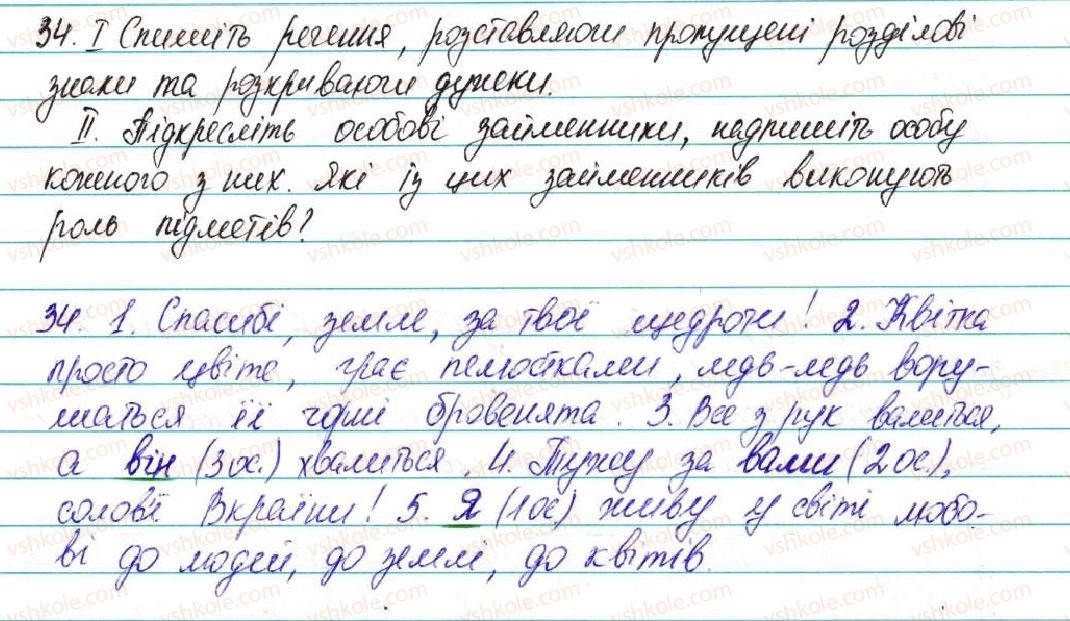 34. I Спишіть речення, розставляючи пропущені розділові
знаки та розкриваючи дужки.
II. Підкресліть особові займенники, надпишіть особу
кожного з них. Які із цих займенників виконують
роль підметів?
34. 1. Спасибі, земле, за твої щедроти! 2. Квітка
просто цвіте, грає пелюстками, ледь-ледь вору-
шаться її чорні бровенята. 3. Все з рук валиться,
а він (3 ос.) хвалиться. 4. Тужу за вами (2 ос.),
солов'ї Вкраїни! 5. Я (1 ос) живу у світі любо-
ві до людей, до землі, до квітів.